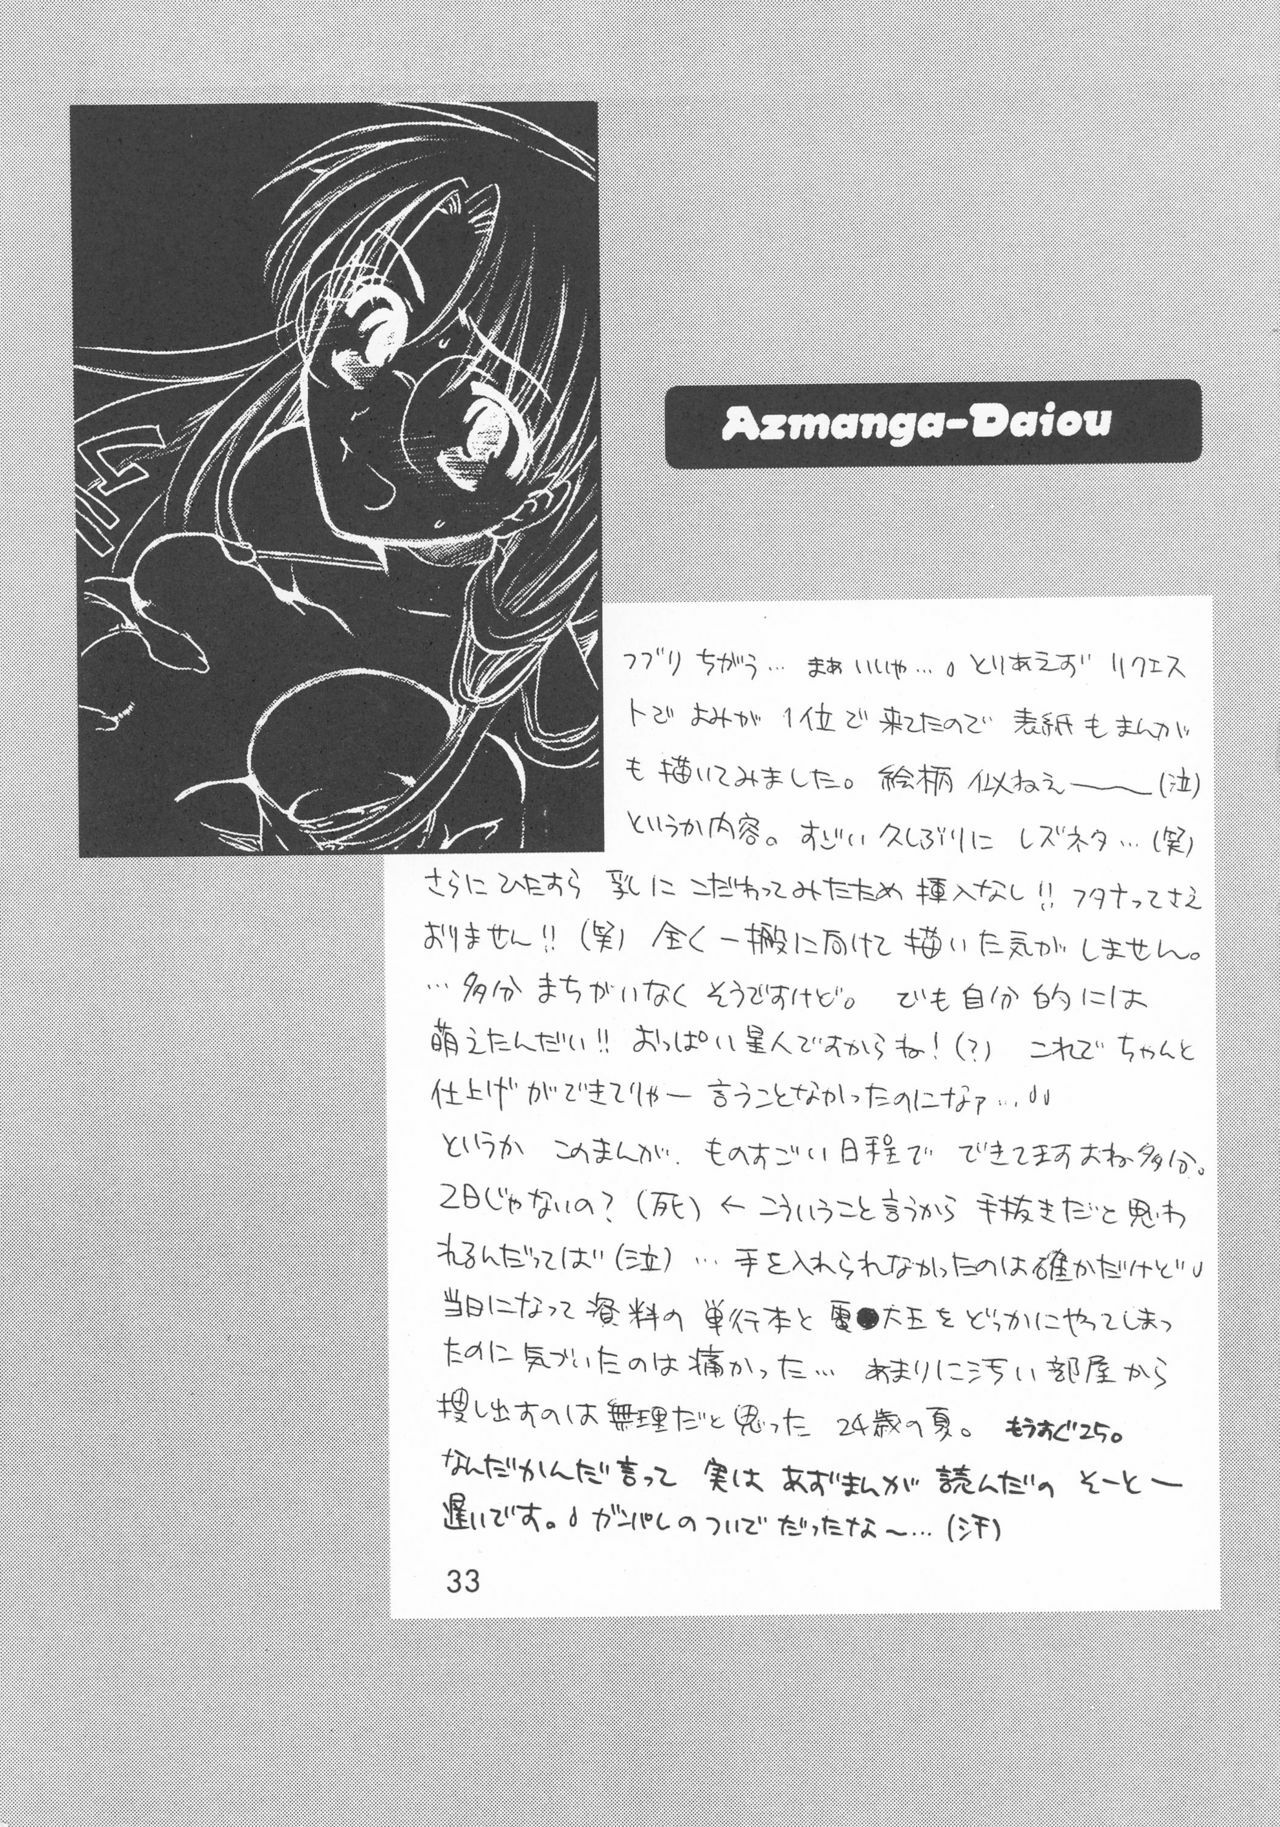 Azmanga-Daiou
つづり ちがう… まぁいいや…。とりあえず リクエス
トで よみが 1位で 来てたので 表紙もまんが
も描いてみました。絵柄 似ねえ――(泣)
というか内容。すごい久しぶりに レズネタ…(笑)
さらに ひたすら 乳に こだわってみたため 挿入なし!! フタナってさえ
おりません!!(笑) 全く一搬に向けて 描いた気がしません。
…多分 まちがいなく そうですけど。 でも自分的には
萌えたんだい!! おっぱい星人ですからね!(?) これで ちゃんと
仕上げができてりゃー 言うことなかったのになァ…
というか このまんが、ものすごい日程で できてますよね多分。
2日じゃないの?(死) ← こういうこと言うから 手抜きだと思わ
れるんだってば(泣) …手を入れられなかったのは確かだけど
当日になって 資料の 単行本と 電●大王を どっかにやってしまっ
たのに 気づいたのは痛かった… あまりに汚い部屋から
捜し出すのは無理だと思った 24歳の夏。 もうすぐ25。
なんだかんだ言って 実は あずまんが 読んだの そーとー
遅いです。 ガンパレのついでだったな～…(汗)
33